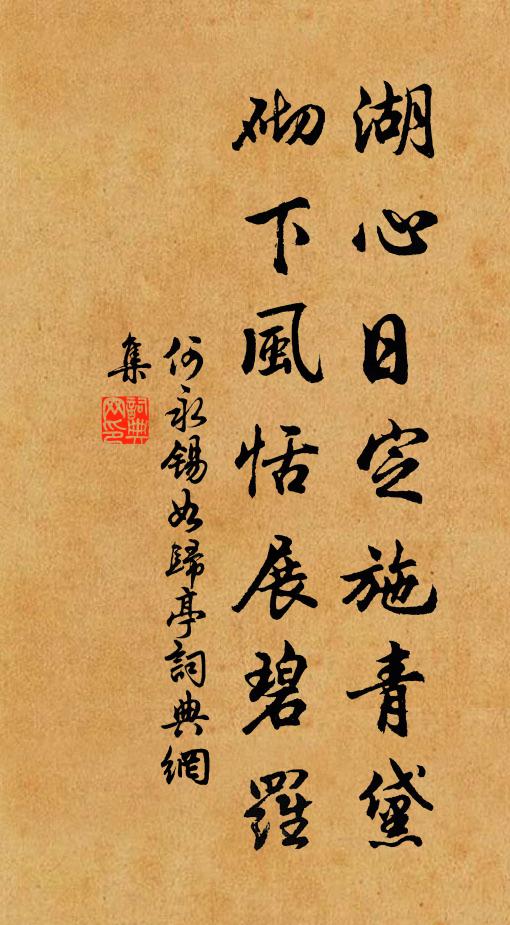 湖心日定施青黛
砌下風恬展碧羅
何永錫如歸亭詞典網
集
詞典網印